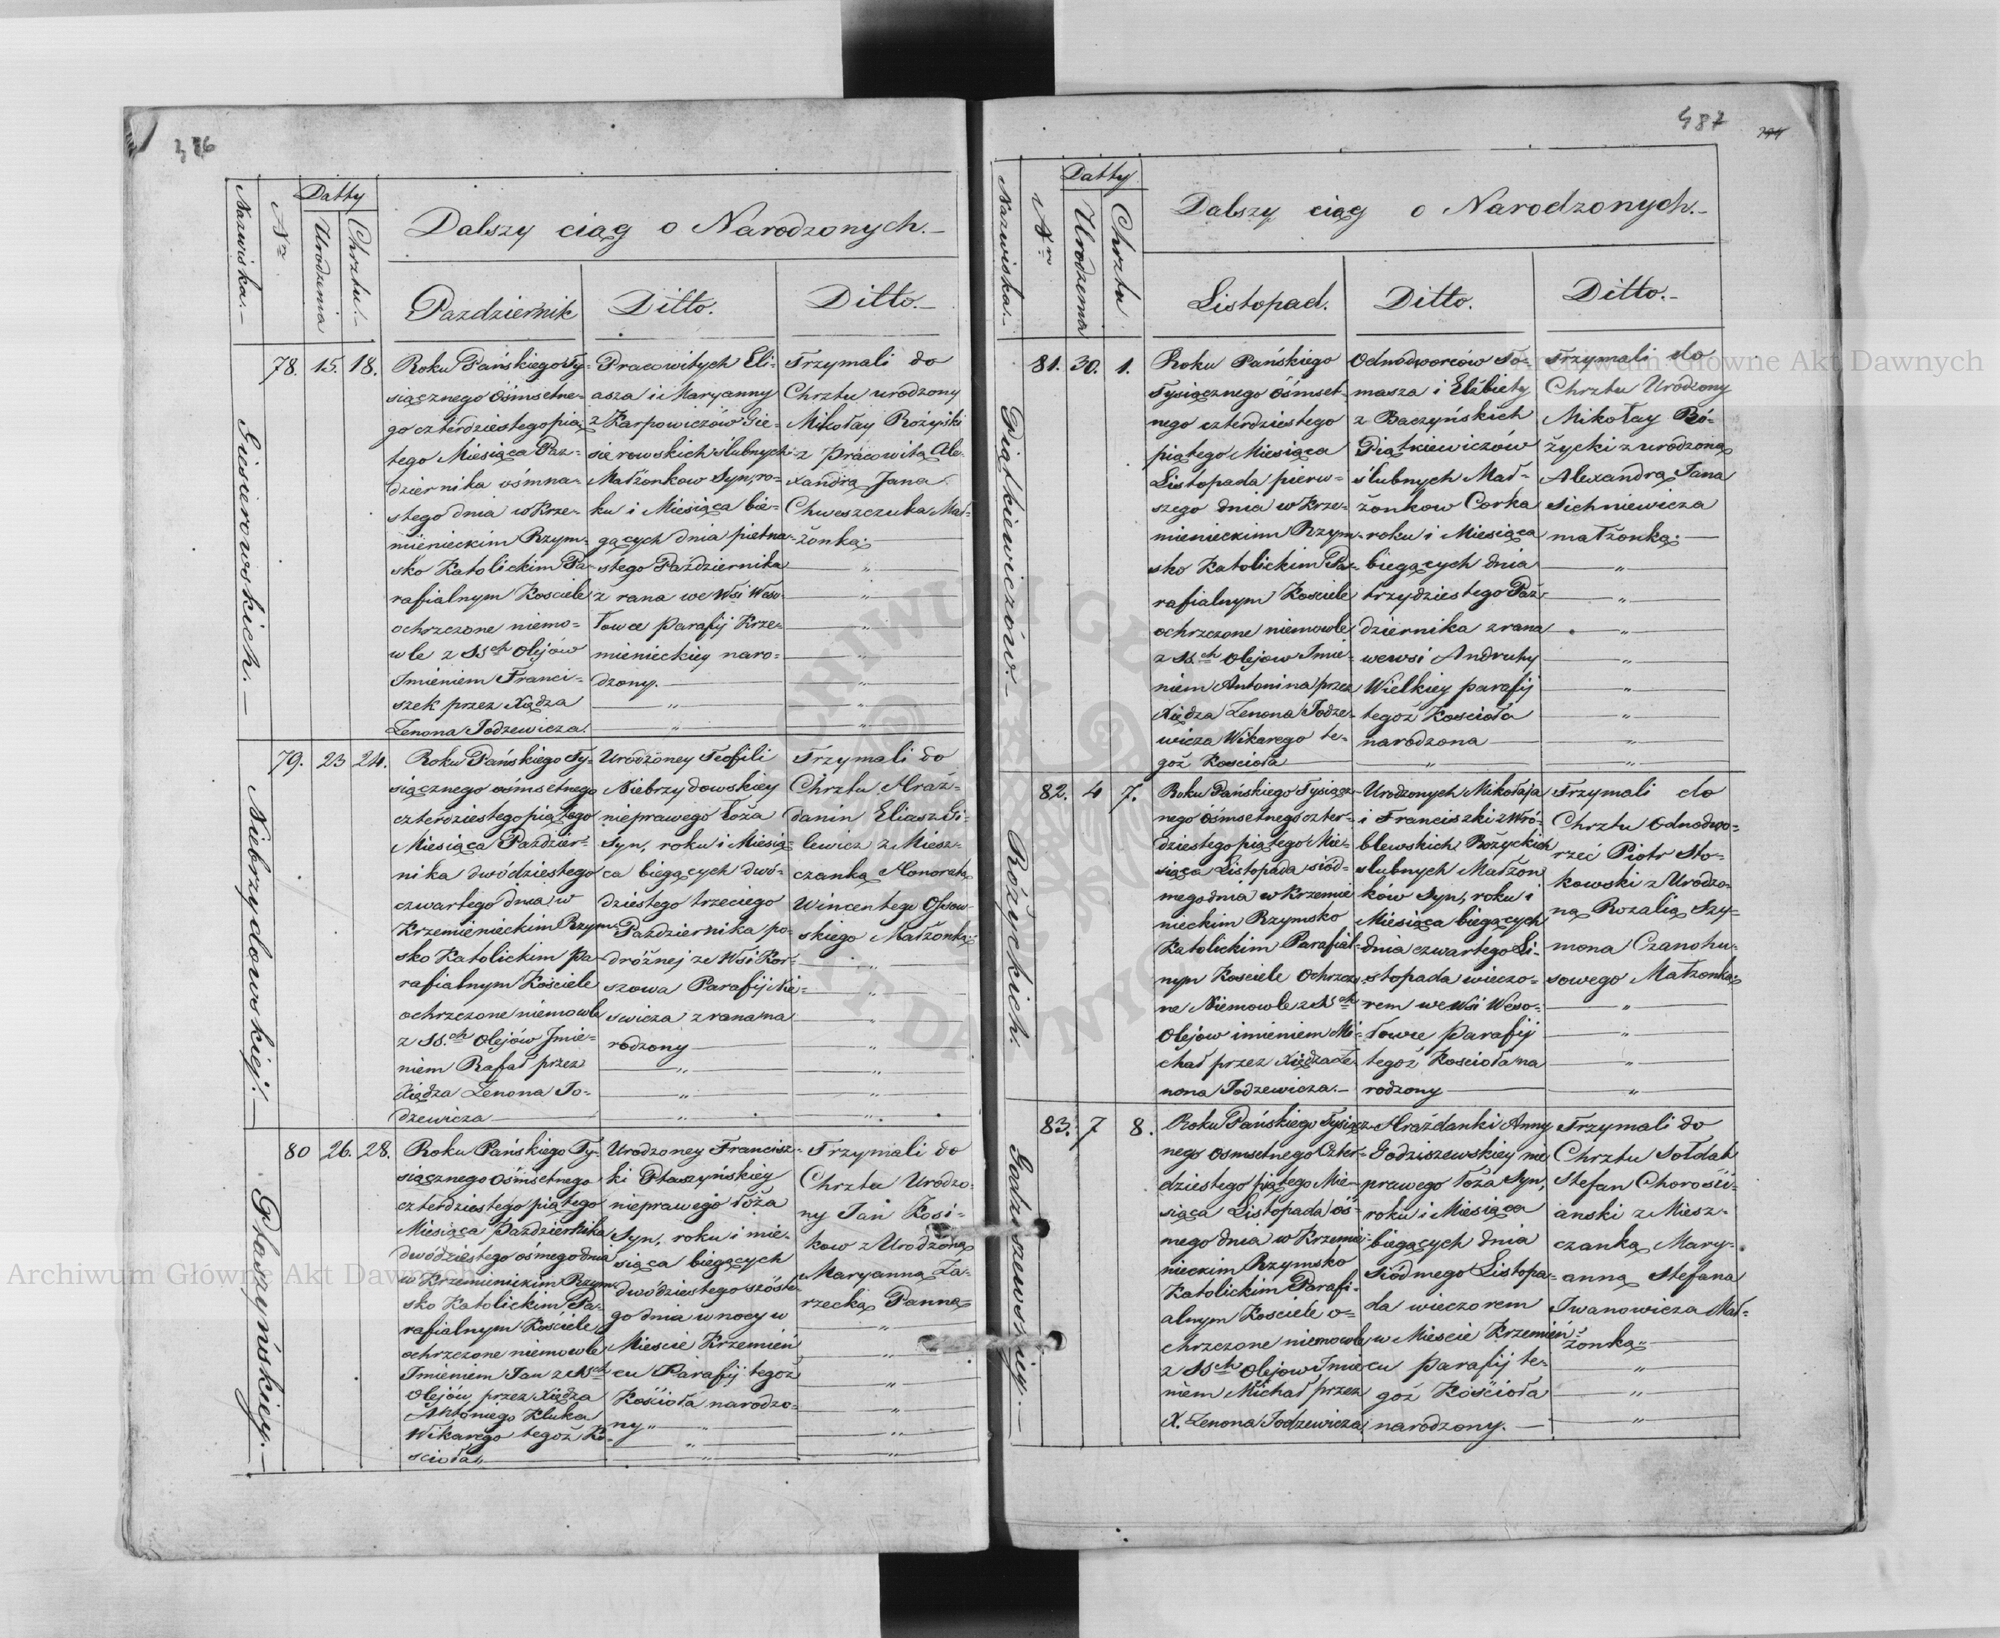 376
Dalszy ciąg o Narodzonych.
Nazwiska.
Nro
Datty
Urodzenia
Chrztu.
Pazdziernik
Ditto.
Ditto.
Giesierowskich.
78.
15.
18.
Roku Pańskiego Ty-
siącznego Ośmsetne-
go czterdziestego pią-
tego Miesiąca Paz-
dziernika ośmna-
stego dnia w Krze-
mienieckim Rzym-
sko Katolickim Pa-
rafialnym Kosciele
ochrzczone niemo-
wle z SSch Olejów
Imieniem Franci-
szek przez Xiędza
Zenona Jodzewicza.
Pracowitych Eli-
asza i Maryanny
z Karpowiczów Gie-
sierowskich slubnych
Małżonkow Syn, ro-
ku i Miesiąca bie-
gących dnia piętna-
stego Pazdziernika
z rana we Wsi Weso-
łowce parafij Krze-
mienieckiey naro-
dzony.
Trzymali do
Chrztu urodzony
Mikołay Rożycki
z Pracowitą Ale-
xandrą Jana
Chweszczuka Mał-
żonką.
Niebrzydowskiej.
79.
23
24.
Roku Pańskiego Ty-
siącznego ośmsetnego
czterdziestego piątego
Miesiąca Paździer-
nika dwódziestego
czwartego dnia w
Krzemienieckim Rzym-
sko Katolickim Pa-
rafialnym Kościele
ochrzczone niemowle
z SS.ch Olejów Imie-
niem Rafał przez
Xiędza Zenona Jo-
dzewicza
Urodzoney Teofili
Niebrzydowskiey
nieprawego Łoża
Syn, roku i Miesią-
ca biegących dwó-
dziestego trzeciego
Pazdziernika po-
dróżnej ze Wsi Kor-
szowa Parafij Nie-
swicza z rana na
rodzony
Trzymali do
Chrztu Hraż-
danin Eliasz Gi-
lewicz z Miesz-
czanką Honoratą
Wincentego Ossow-
skiego Małżonką
Ptaszyńskiey.
80
26.
28.
Roku Pańskiego Ty-
siącznego Ośmsetnego
czterdziestego piątego
Miesiąca Pazdziernika
dwódziestego ośmego dnia
w Krzemienickim Rzym-
sko Katolickim Pa-
rafialnym Kościele
ochrzczone niemowle
Imieniem Jan z SSch
Olejów przez Xiędza
Antoniego Kluka
Wikarego tegoż Ko-
scioła
Urodzoney Francisz-
ki Ptaszyńskiey
nieprawego łoża
Syn, roku i mie-
siąca biegących
dwódziestego szóste-
go dnia w nocy w
Miescie Krzemień
cu Parafij tegoż
Kościoła narodzo-
ny
Trzymali do
Chrztu Urodzo-
ny Jan Kosi-
kow z Urodzoną
Maryanną Za-
rzecką Panną
487
Dalszy ciąg o Narodzonych.
Nazwiska.
Nro
Datty
Urodzenia
Chrztu
Listopad.
Ditto.
Ditto.
Piątkiewiczów.
81.
30.
1.
Roku Pańskiego
Tysiącznego Ośmset-
nego czterdziestego
piątego Miesiąca
Listopada pierw-
szego dnia w Krze-
mienieckim Rzym-
sko Katolickim Pa-
rafialnym Kosciele
ochrzczone niemowle
z SS.ch Olejow Imie-
niem Antonina przez
Xiędza Zenona Jodze-
wicza Wikarego te-
goż Kościoła
Odnodworcow To-
masza i Elżbiety
z Baczyńskich
Piątkiewiczów
slubnych Mał-
żonkow Corka
roku i Miesiąca
biegących dnia
trzydziestego Paź-
dziernika z rana
we wsi Andruhy
Wielkiey parafij
tegoż Kościoła
narodzona
Trzymali do
Chrztu Urodzony
Mikołay Ró-
życki z urodzoną
Alexandrą Jana
Sichniewicza
małżonką.
Różyckich.
82.
4
7.
Roku Pańskiego Tysiącz-
nego Ośmsetnego czter-
dziestego piątego Mie-
siąca Listopada siód-
mego dnia w Krzemie
nieckim Rzymsko
Katolickim Parafial-
nym Kosciele Ochrzczo-
ne Niemowle z SSch
Olejow imieniem Mi-
chał przez Xiędza Ze-
nona Jodzewicza.
Urodzonych Mikołaja
i Franciszki z Wró-
blewskich Rożyckich
slubnych Małżon
ków Syn, roku i
Miesiąca biegących
dnia czwartego Li-
stopada wieczo-
rem we Wsi Weso-
łowce parafij
tegoż Kościoła na
rodzony
Trzymali do
Chrztu Odnodwo-
rzec Piotr Sto-
kowski z Urodzo-
ną Rozalią Szy-
mona Czanohu-
sowego Małżonką
Godziszewskiey.
83.
7
8.
Roku Pańskiego Tysiącz-
nego Osmsetnego Czter-
dziestego piątego Mie-
siąca Listopada ós-
mego dnia w Krzemie-
nieckim Rzymsko
Katolickim Parafi-
alnym Kosciele o-
chrzczone niemowle
z SSch Olejow Imie
niem Michał przez
X. Zenona Jodzewicza
Hrażdanki Anny
Godziszewskiey nie
prawego łoża Syn,
roku i Miesiąca
biegących dnia
Siódmego Listopa-
da wieczorem
w Miescie Krzemień-
cu parafij te-
goż Kościoła
narodzony.
Trzymali do
Chrztu Sołdat
Stefan Chorosii-
anski z Miesz-
czanką Mary-
anną Stefana
Iwanowicza Mał-
żonką
Archiwum Główne Akt Dawnych
Archiwum Główne Akt Dawnych